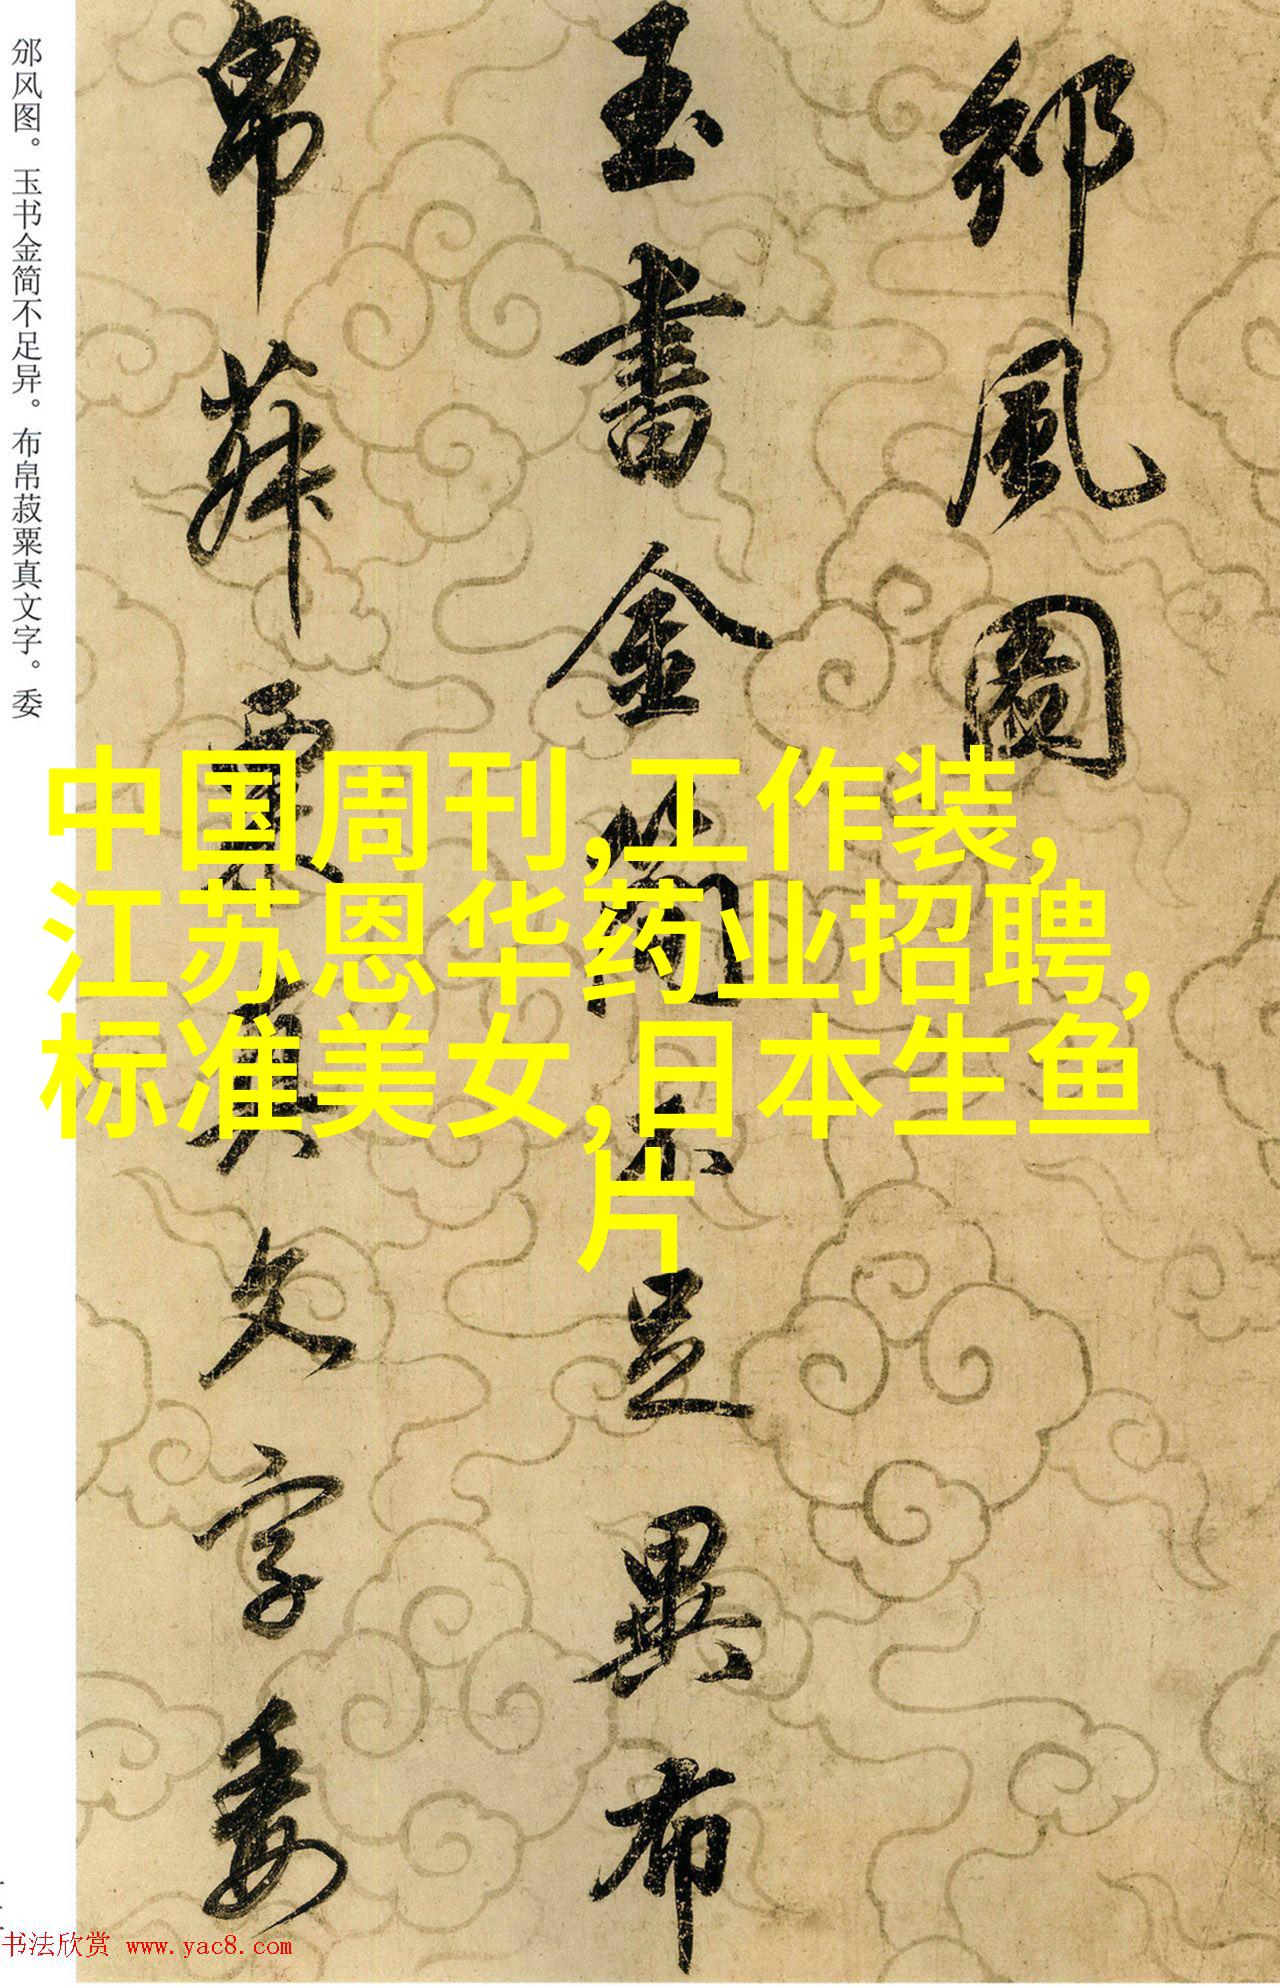 邠風圖
玉書金簡不足異布
帛菽粟真文字委
邠风图。玉书金简不足异。布帛菽粟真文字。委
中国周刊,工作装,
江苏恩华药业招聘,
标准美女,日本生鱼
片
书法欣赏 www.yac8.com